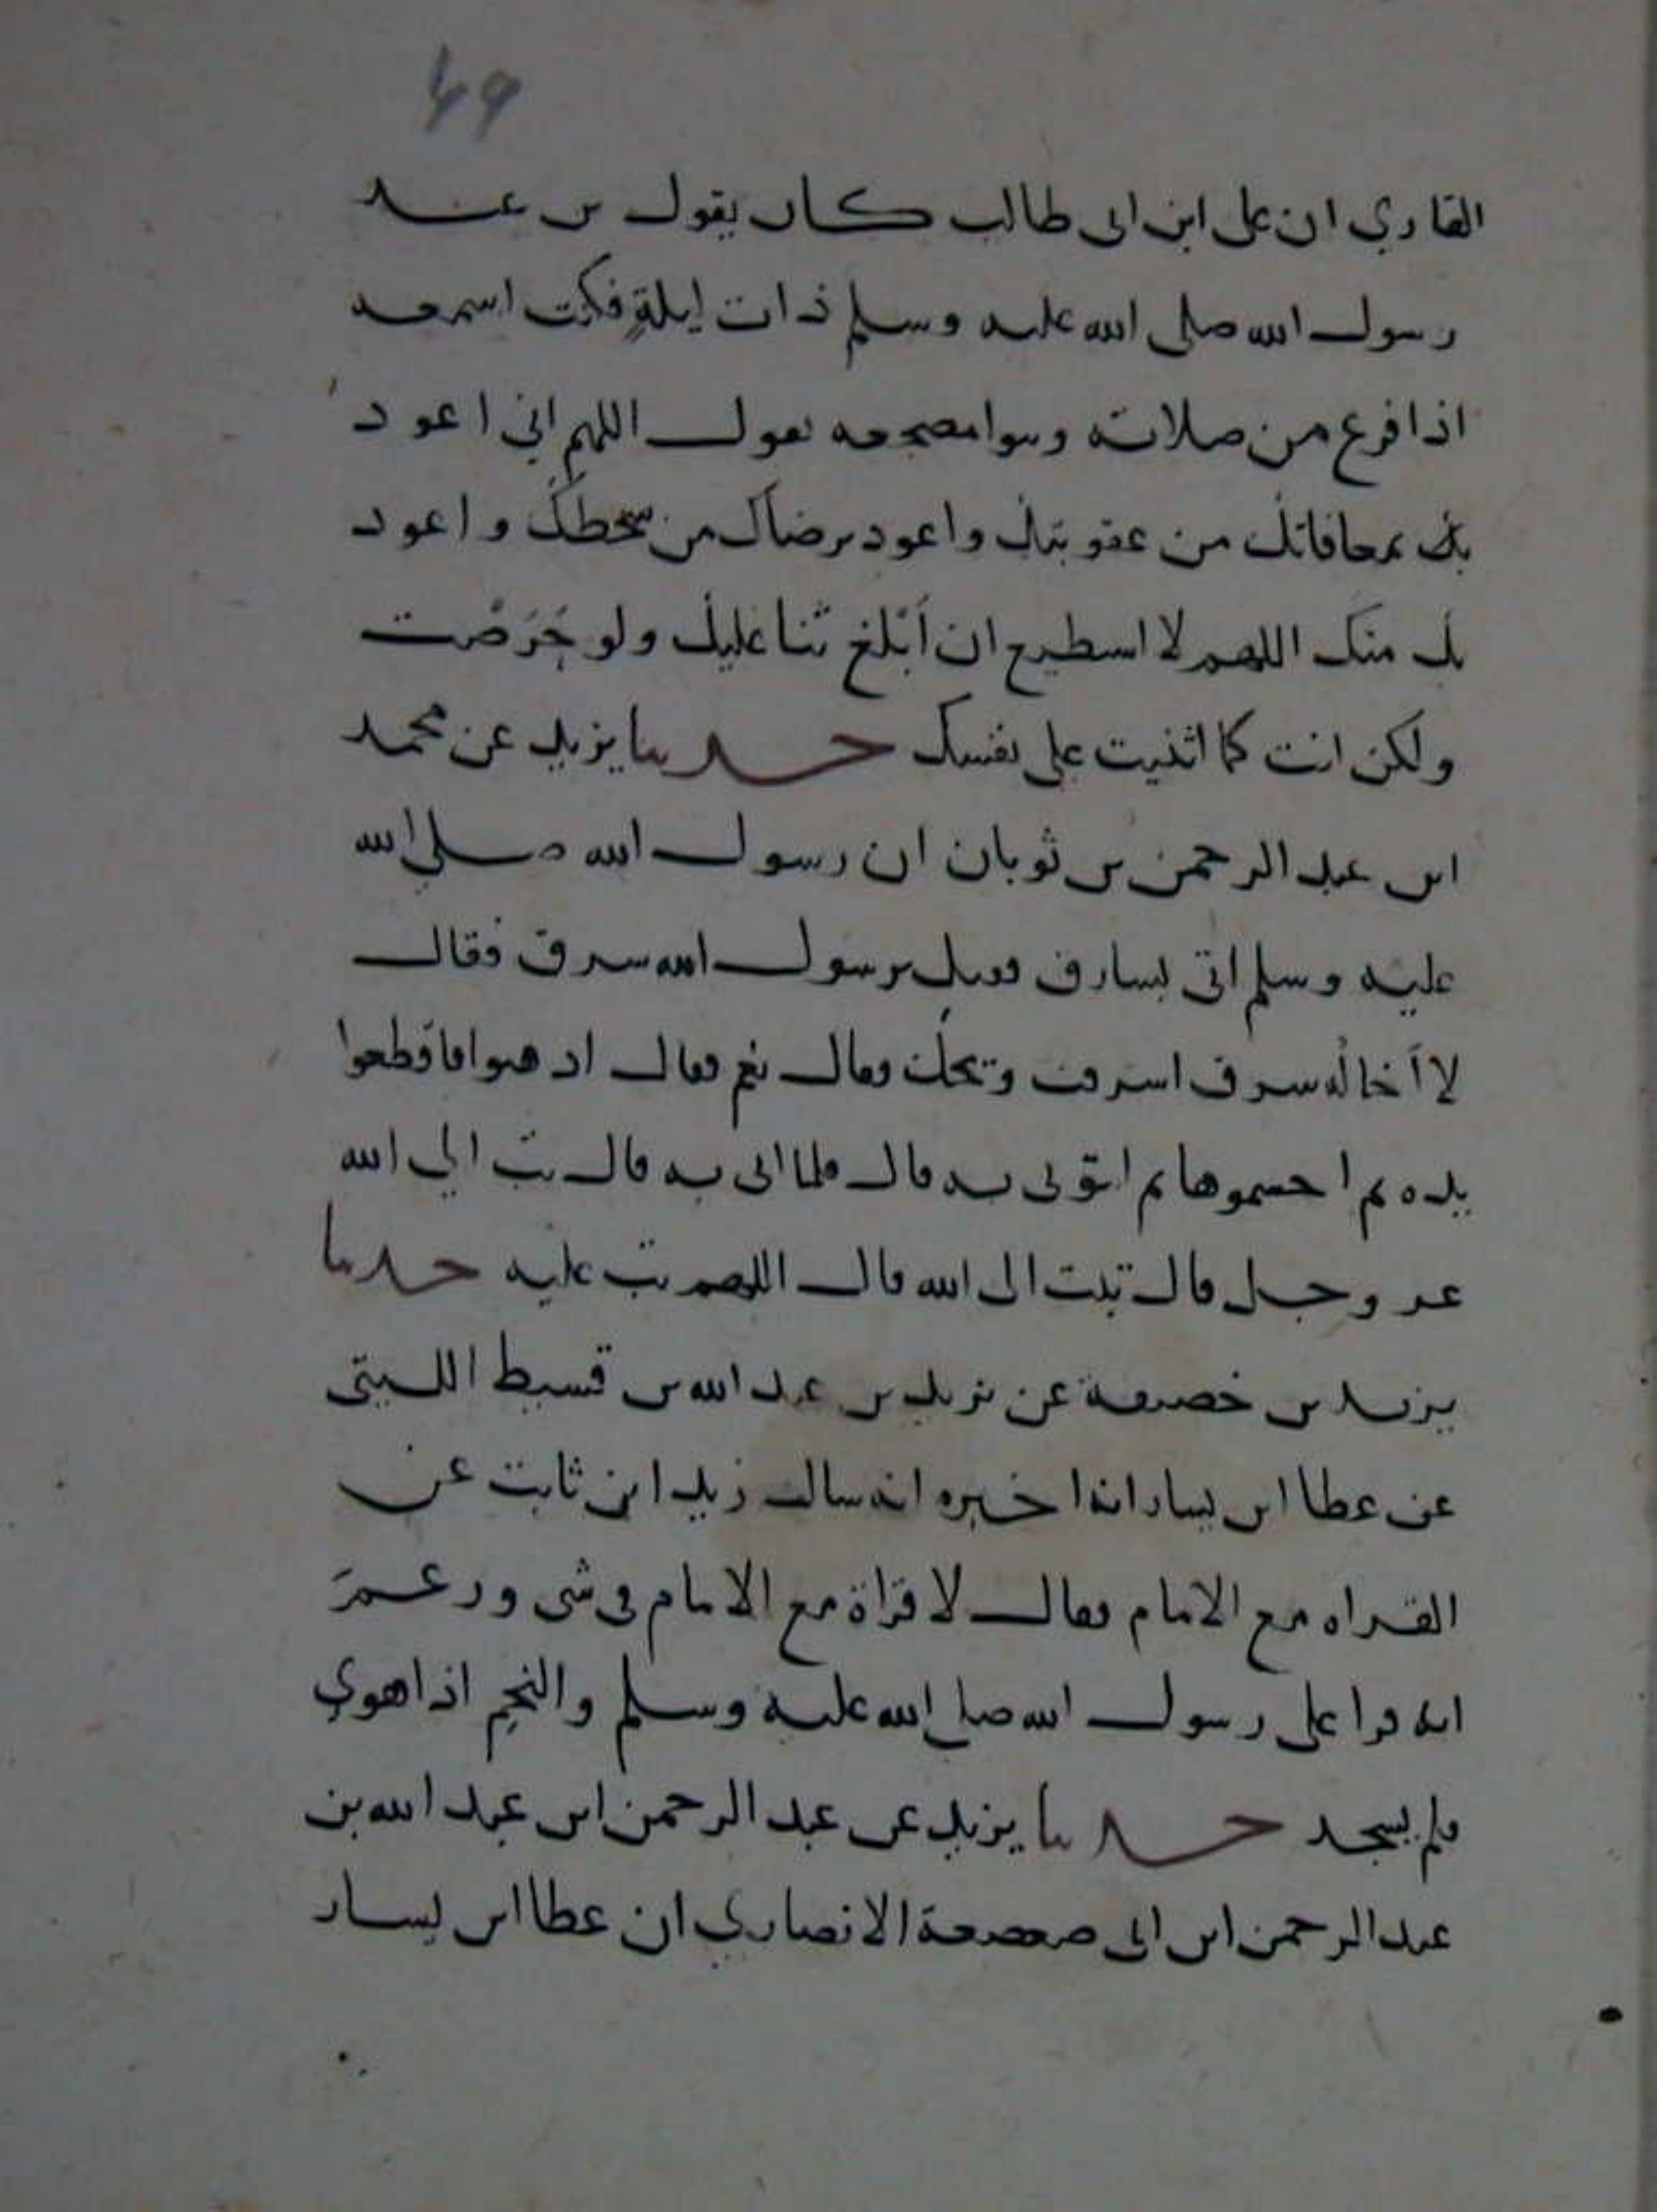 49
القاري ان على ابن ابى طالب كان يقول بن عند
رسول الله صلى الله عليه وسلم ذات ليلةٍ فكنت اسمعه
اذا فرغ من صلاته وبتوا مضجعه يقول اللهم اني اعوذ
بك بمعافاتك من عقوبتك واعوذ برضاك من سخطك واعوذ
بك منك اللهم لا استطيع ان اَبْلغ ثنا عليك ولو حَرَصْت
ولكن انت كما اثنيت على نفسك حدثنا يزيد عن محمد
ابن عبد الرحمن بن ثوبان ان رسول الله صلى الله
عليه وسلم اتى بسارق فقيل يرسول الله سرق فقال
لا اَخاله سرق اسرقت ويحك فقال نعم فقال اذهبوا فاقطعوا
يده ثم احسموها ثم ايتوني به قال فلما اتى به قال تب الي الله
عز وجل قال تبت الى الله قال اللهم تب عليه حدثنا
يزيد بن خصيفة عن يزيد بن عبد الله بن قسيط الليثى
عن عطا ابن يسار انه اخبره انه سال زيد ابن ثابت عن
القراه مع الامام فقال لا قراة مع الامام فى شى وزعمَ
انه قرا على رسول الله صلى الله عليه وسلم والنجم اذا هوي
فلم يسجد حدثنا يزيد عن عبد الرحمن ابن عبد الله بن
عبد الرحمن ابن ابى صعصعة الانصاري ان عطا ابن يسار